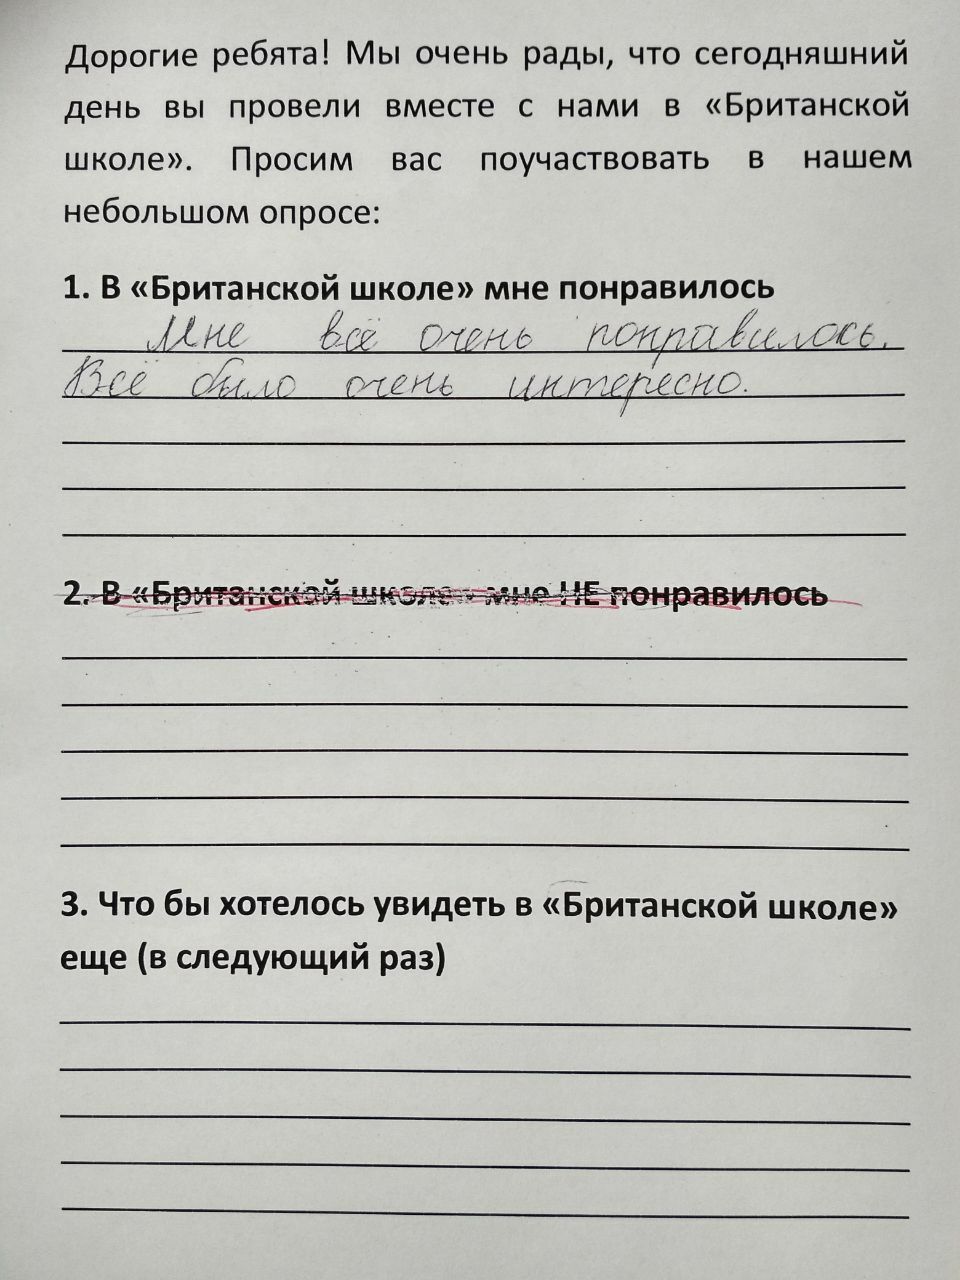 Дорогие ребята! Мы очень рады, что сегодняшний
день вы провели вместе с нами в «Британской
школе». Просим вас поучаствовать в нашем
небольшом опросе:
1. В «Британской школе» мне понравилось
Мне всё очень понравилось.
Всё было очень интересно.
2. В «Британской школе» мне НЕ понравилось
3. Что бы хотелось увидеть в «Британской школе»
еще (в следующий раз)